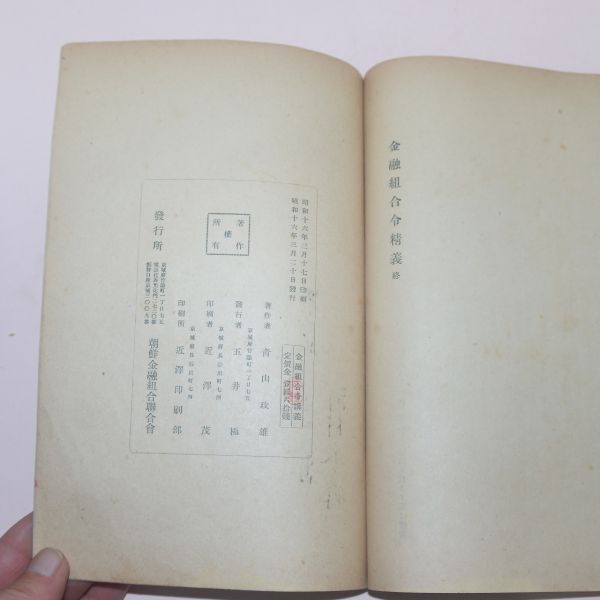 金融組合令精義 終
昭和十六年三月十七日印刷
昭和十六年三月二十日發行
著作權所有
金融組合令講義
定價金壹圓六拾錢
著作者 靑山政雄
發行者 五井極
京城府長谷川町七四
印刷者 近澤茂
京城府長谷川町七四
印刷所 近澤印刷部
發行所
朝鮮金融組合聯合會